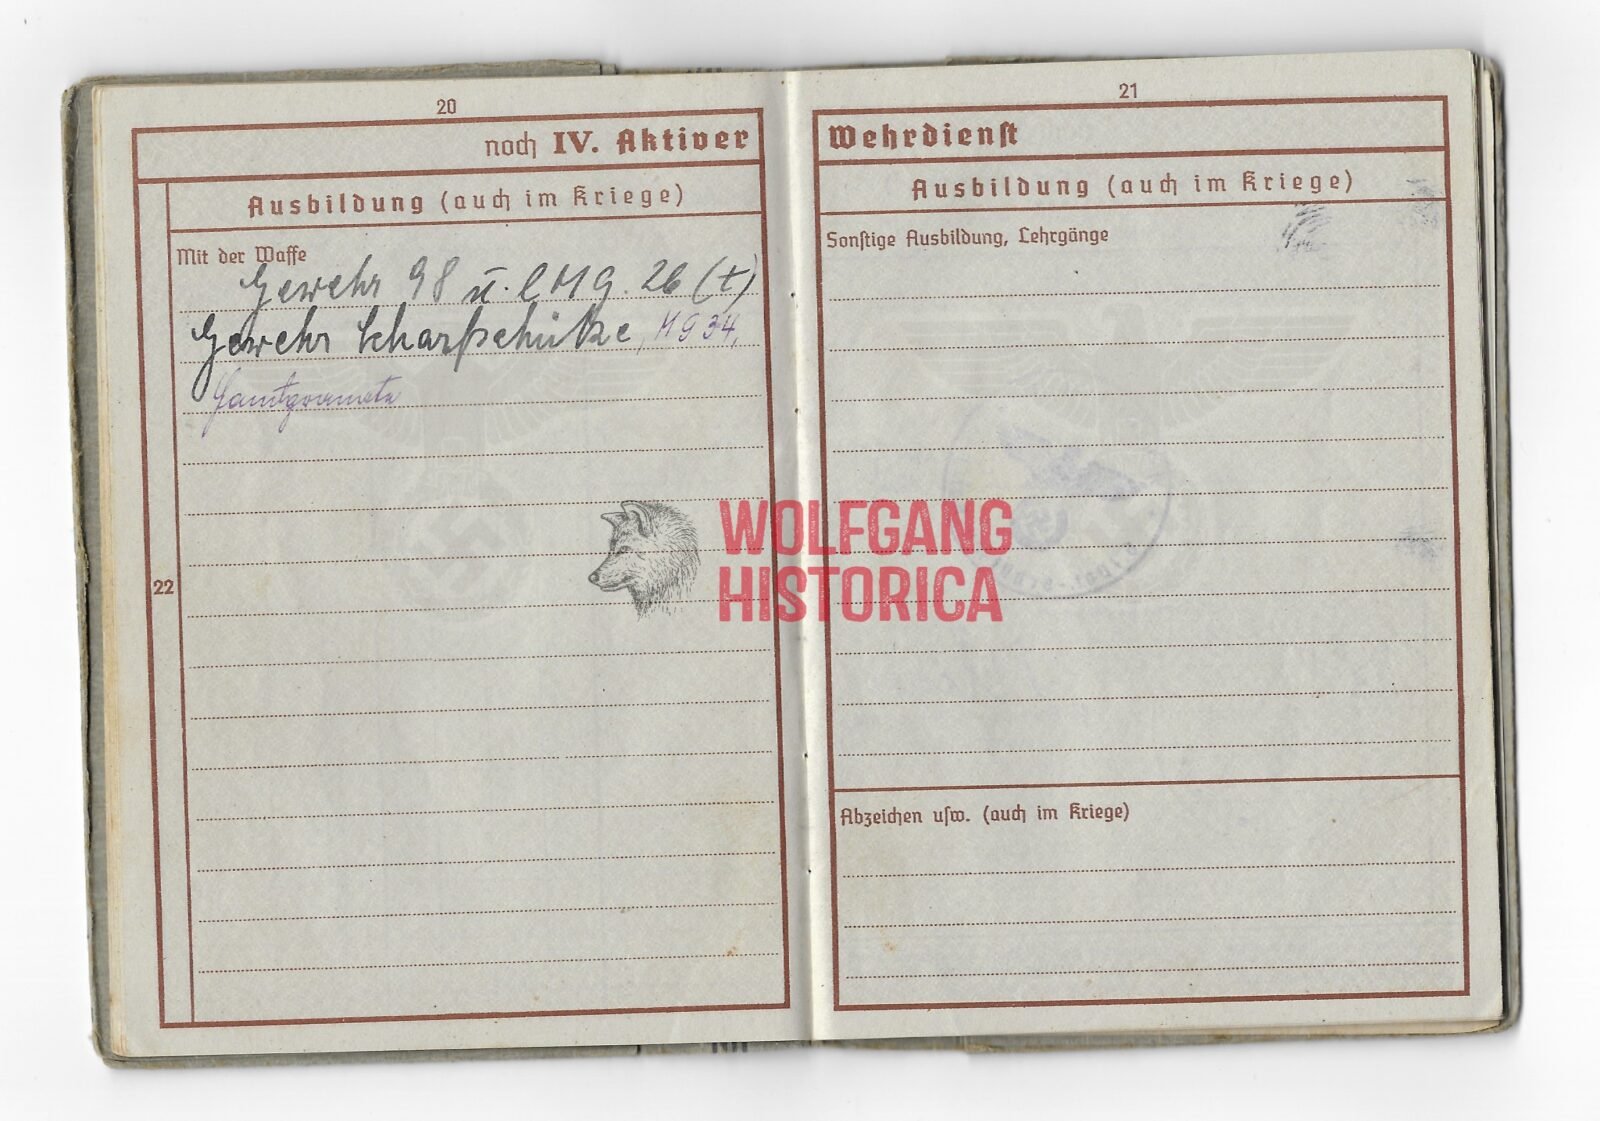 20
noch IV. Aktiver
Ausbildung (auch im Kriege)
Mit der Waffe
Gewehr 98 u. l M G. 26 (t)
Gewehr Scharfschütze, MG 34,
22
21
Wehrdienst
Ausbildung (auch im Kriege)
Sonstige Ausbildung, Lehrgänge
Abzeichen usw. (auch im Kriege)
WOLFGANG
HISTORICA